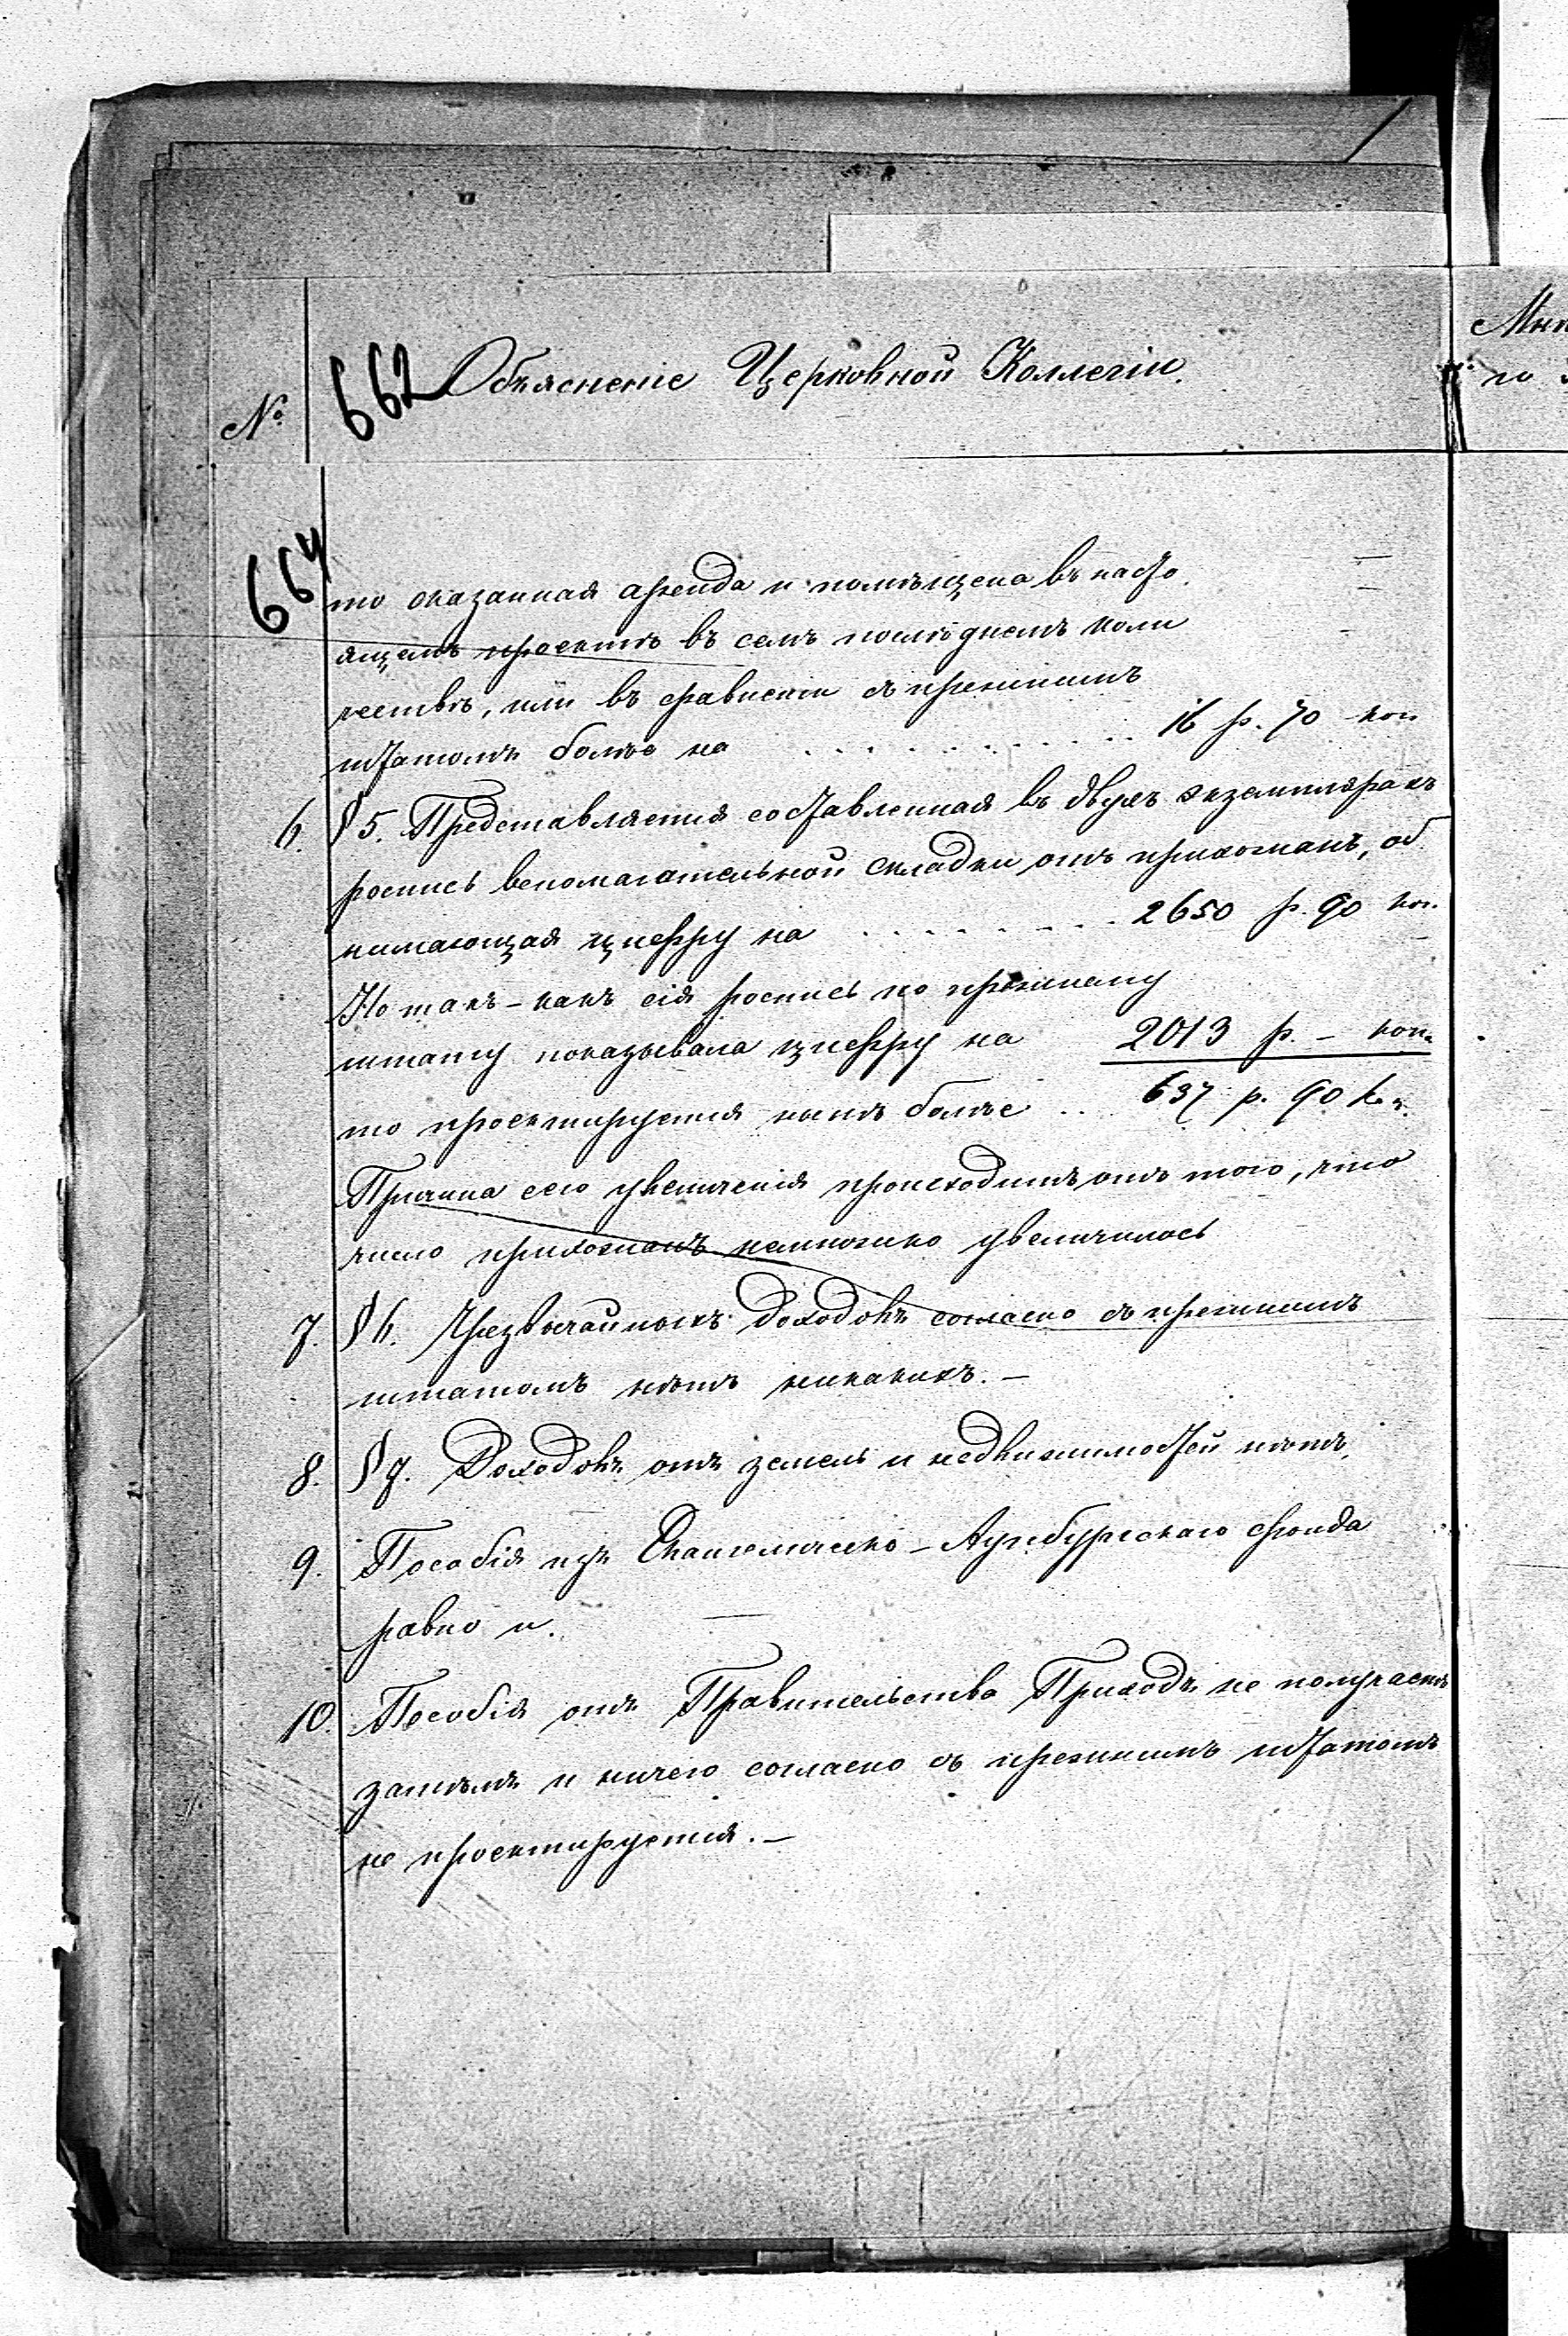 № 662 Объясненіе Церковной Коллегіи.
Мнѣ
по
664
то оказанная аренда и помѣщена въ насто
ящемъ проектѣ въ семъ послѣднемъ коли
чествѣ, или въ сравненіи съ прежнимъ
штатомъ болѣе на . . . . . . . . . . . 16 р. 70 коп
6. § 5. Представляется составленная въ двухъ экземплярахъ
роспись вспомагательной складки отъ прихожанъ, об
нимающая цифру на . . . . . . . 2650 р. 90 коп.
Но такъ-какъ сія роспись по прежнему
штату показывала цифру на 2013 р. - коп.
то проектируется нынѣ болѣе . . 637 р. 90 к.
Причина сего увеличенія происходитъ отъ того, что
число прихожанъ немножко увеличилось
7. § 6. Чрезвычайныхъ доходовъ согласно съ прежнимъ
штатомъ нѣтъ никакихъ. -
8. § 7. Доходовъ отъ земель и недвижимостей нѣтъ.
9. Пособія изъ Евангелическо-Аугсбургскаго фонда
равно и.
10. Пособія отъ Правительства Приходъ не получаетъ
затѣмъ и ничего согласно съ прежнимъ штатомъ
не проектируется. -